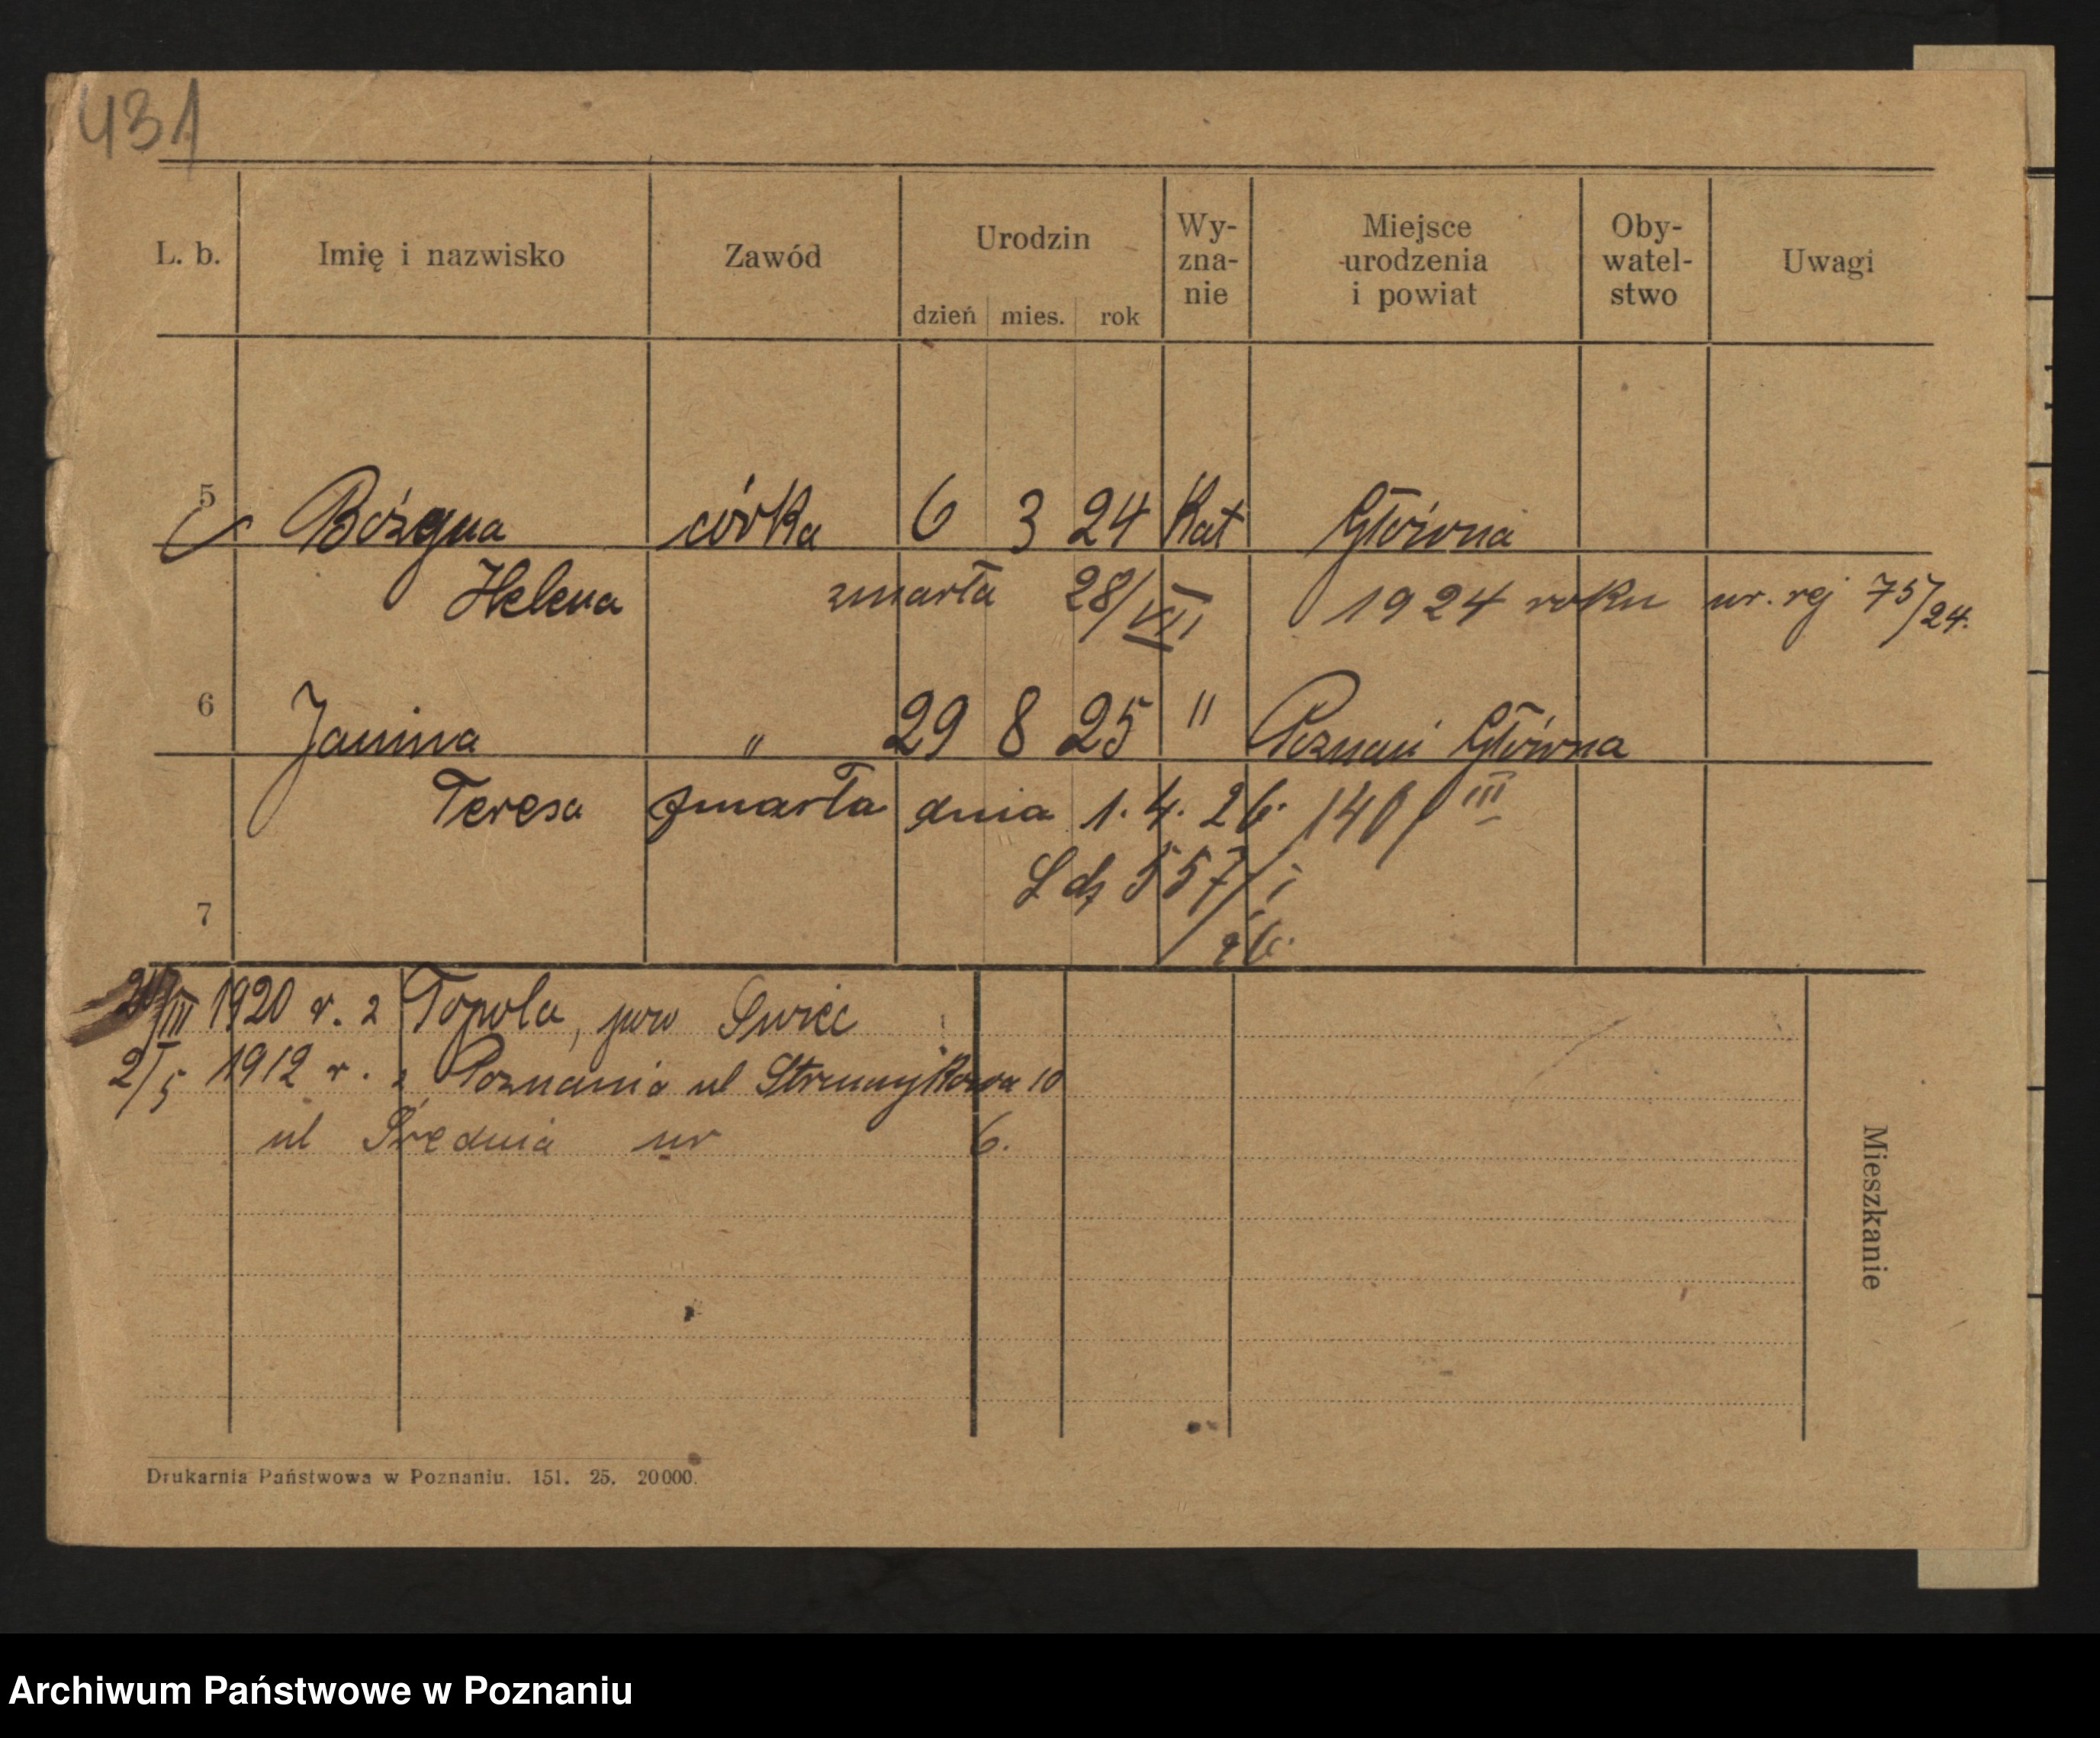 431
L. b. Imię i nazwisko Zawód Urodzin Wy- Miejsce Oby- Uwagi
zna- urodzenia watel-
nie i powiat stwo
dzień mies. rok
5 Bożena córka 6 3 24 Kat Główna
Helena zmarła 28/VII 1924 roku nr. rej 75/24.
6 Janina " 29 8 25 " Poznań Główna
Teresa zmarła dnia 1. 4. 26. 140/III
L dz 557/I
26.
7
/III 1920 r. z Topola, pow
2/5 1912 r. z Poznania ul Strumykowa 10
ul Średnia nr 6.
Mieszkanie
Drukarnia Państwowa w Poznaniu. 151. 25. 20000.
Archiwum Państwowe w Poznaniu